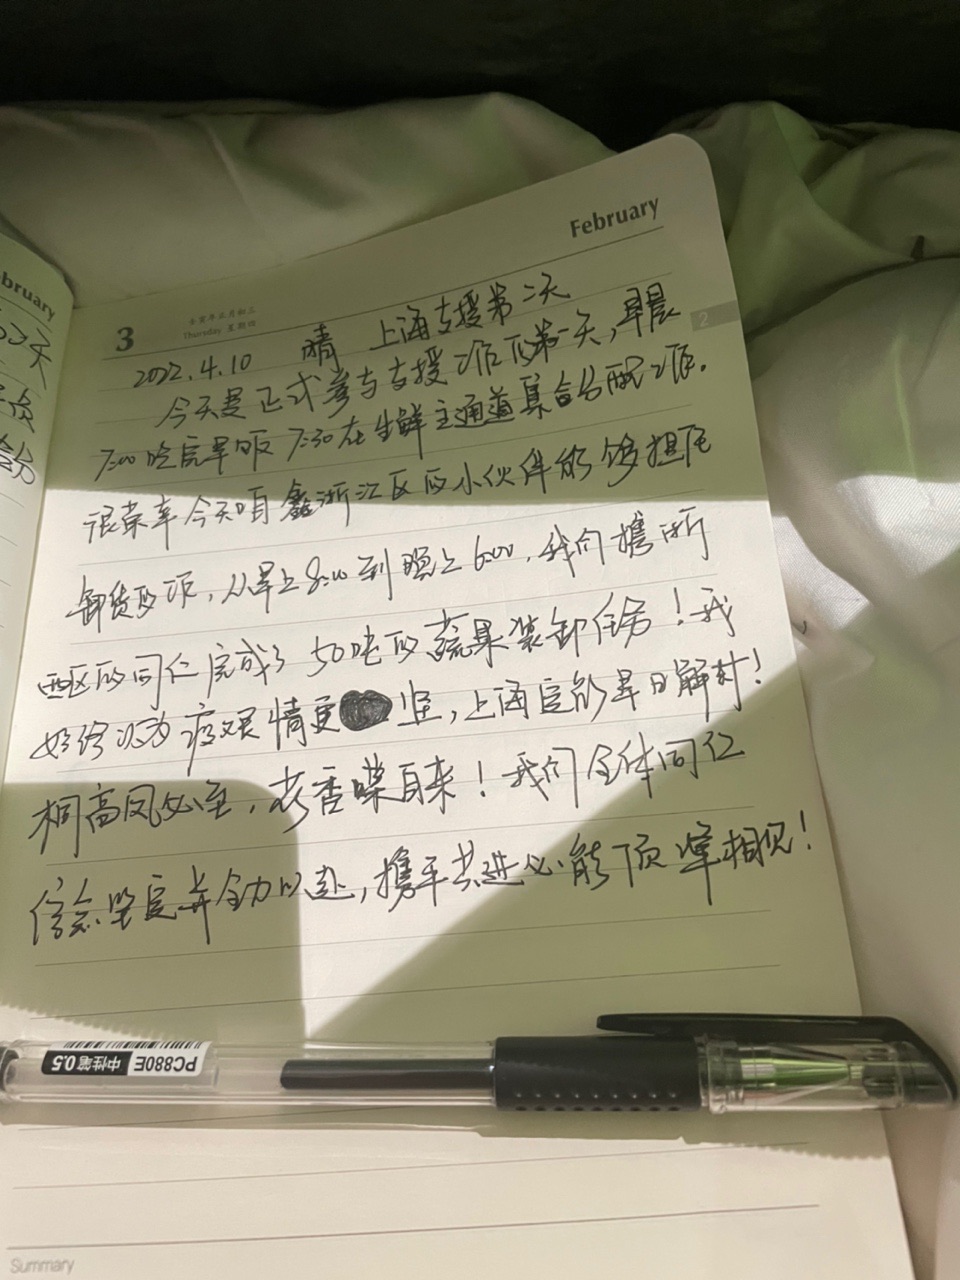 bruary
February
3
壬寅年正月初三
Thursday 星期四
2
2022.4.10 晴 上海支援第二天
今天是正式参与支援工作的第一天,早晨
7:00吃完早饭 7:30在生鲜主通道集合分配工作。
很荣幸今天咱鑫浙江区的小伙伴能够担任
卸货的工作,从早上8:00到晚上6:00,我们携浙
西区的同仁完成了50吨的蔬果装卸任务!我
始终认为疫艰情更坚,上海定能早日解封!
桐高凤必至,花香蝶自来!我们全体同仁
信念坚定并全力以赴,携手共进必能顶峰相见!
PC880E
中性笔0.5
Summary